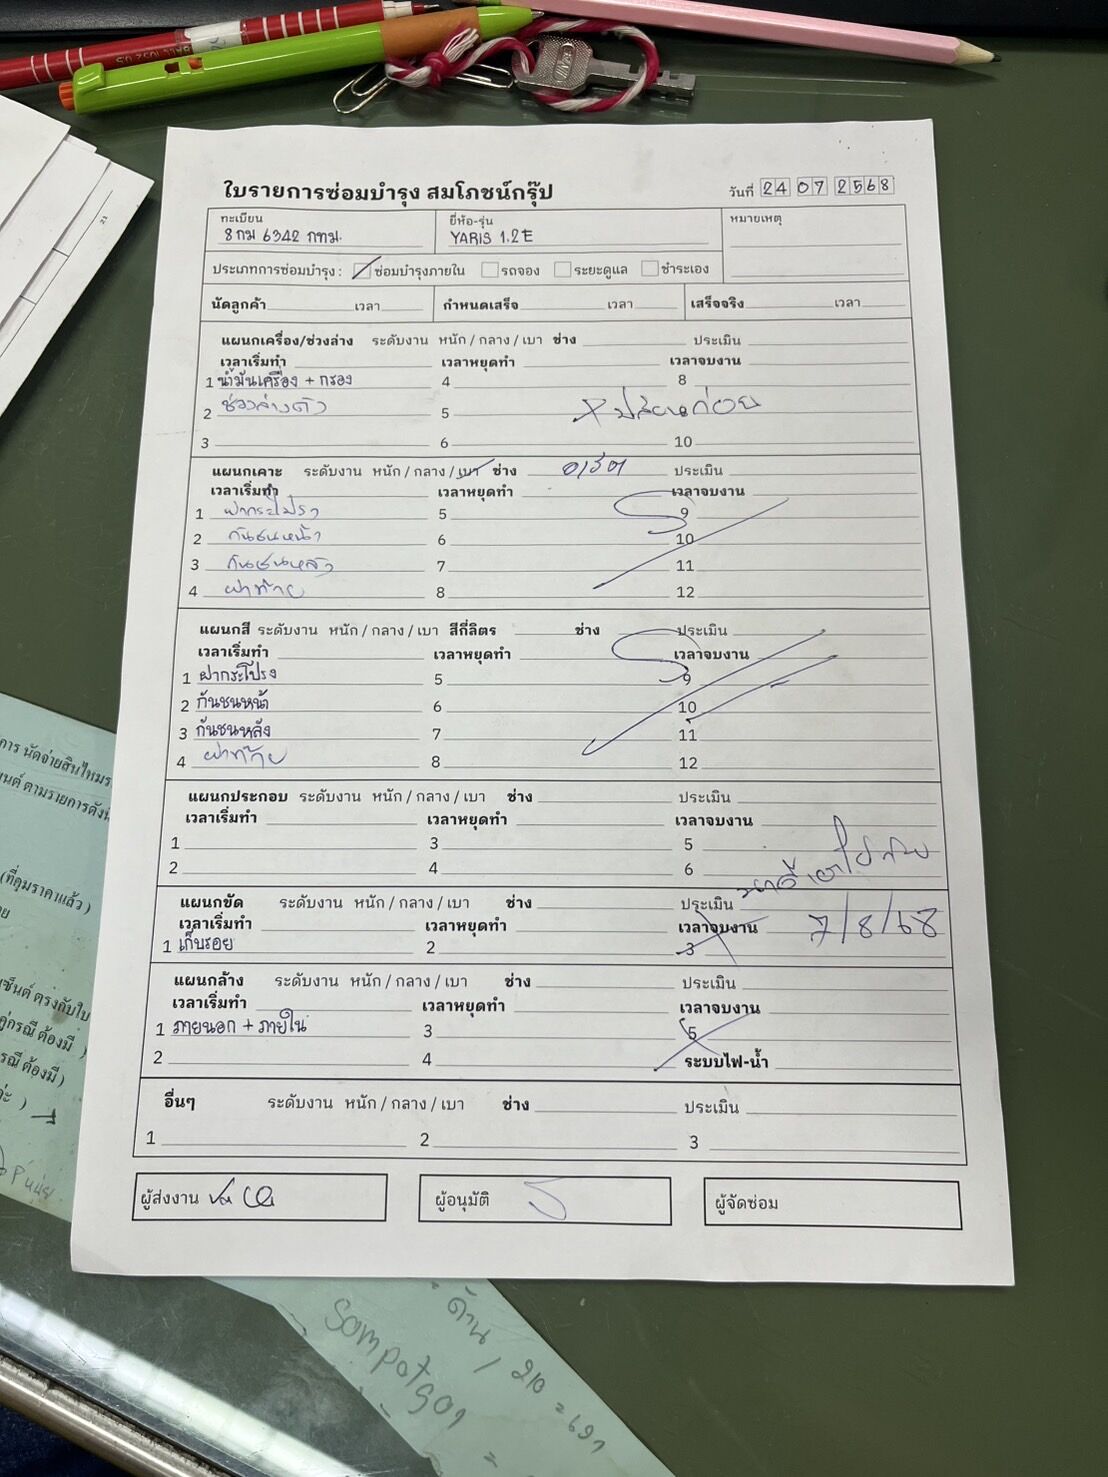 ใบรายการซ่อมบำรุง สมโภชน์กรุ๊ป
วันที่ 24 07 2568
ทะเบียน ยี่ห้อ-รุ่น หมายเหตุ
8กม 6342 กทม. YARIS 1.2E
ประเภทการซ่อมบำรุง : ซ่อมบำรุงภายใน รถจอง ระยะดูแล ชำระเอง
นัดลูกค้า เวลา กำหนดเสร็จ เวลา เสร็จจริง เวลา
แผนกเครื่อง/ช่วงล่าง ระดับงาน หนัก / กลาง / เบา ช่าง ประเมิน
เวลาเริ่มทำ เวลาหยุดทำ เวลาจบงาน
1 น้ำมันเครื่อง + กรอง 4 8
2 ช่วงล่างดัง 5
3 6 10
แผนกเคาะ ระดับงาน หนัก / กลาง / เบา ช่าง ประเมิน
เวลาเริ่มทำ เวลาหยุดทำ เวลาจบงาน
1 ฝากระโปรง 5 9
2 กันชนหน้า 6 10
3 กันชนหลัง 7 11
4 ฝาท้าย 8 12
แผนกสี ระดับงาน หนัก / กลาง / เบา สีกี่ลิตร ช่าง ประเมิน
เวลาเริ่มทำ เวลาหยุดทำ เวลาจบงาน
1 ฝากระโปรง 5 9
2 กันชนหน้า 6 10
3 กันชนหลัง 7 11
4 ฝาท้าย 8 12
แผนกประกอบ ระดับงาน หนัก / กลาง / เบา ช่าง ประเมิน
เวลาเริ่มทำ เวลาหยุดทำ เวลาจบงาน
1 3 5
2 4 6
แผนกขัด ระดับงาน หนัก / กลาง / เบา ช่าง ประเมิน
เวลาเริ่มทำ เวลาหยุดทำ เวลาจบงาน 7/8/68
1 เก็บรอย 2 3
แผนกล้าง ระดับงาน หนัก / กลาง / เบา ช่าง ประเมิน
เวลาเริ่มทำ เวลาหยุดทำ เวลาจบงาน
1 ภายนอก + ภายใน 3 5
2 4 ระบบไฟ-น้ำ
อื่นๆ ระดับงาน หนัก / กลาง / เบา ช่าง ประเมิน
1 2 3
ผู้ส่งงาน ผู้อนุมัติ ผู้จัดซ่อม
(ที่คุมราคาแล้ว)
คู่กรณี ต้องมี )
P'หนุ่ย